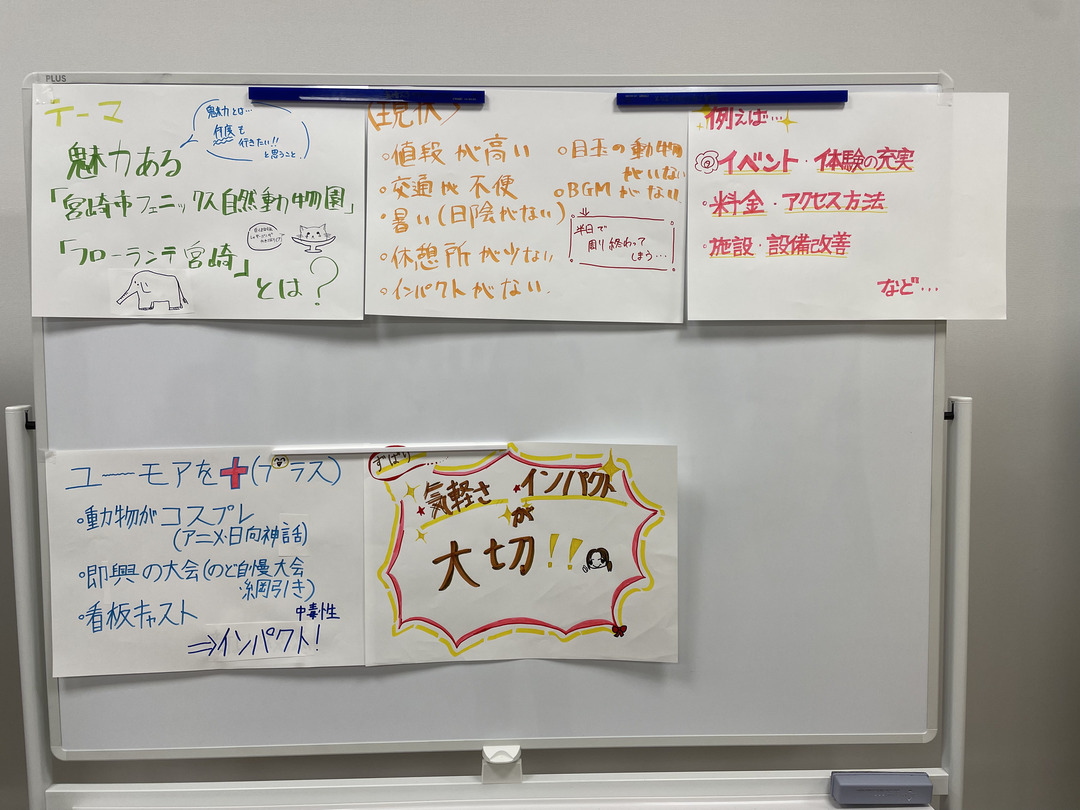 PLUS
テーマ
魅力とは…
何度も
行きたい!!
と思うこと
魅力ある
「宮崎市フェニックス自然動物園」
「フローランテ宮崎」
とは?
(現状)
◦値段が高い
◦交通が不便
◦暑い(日陰がない)
◦休憩所が少ない
◦インパクトがない
◦目玉の動物
がいない
◦BGMがない
半日で
周り終わって
しまう…
例えば…
イベント・体験の充実
◦料金・アクセス方法
◦施設・設備改善
など…
ユーモアを+(プラス)
◦動物がコスプレ
(アニメ・日向神話)
◦即興の大会(のど自慢大会
綱引き)
◦看板キャスト
中毒性
⇒インパクト!
ずばり……
気軽さ インパクト
が
大切!!